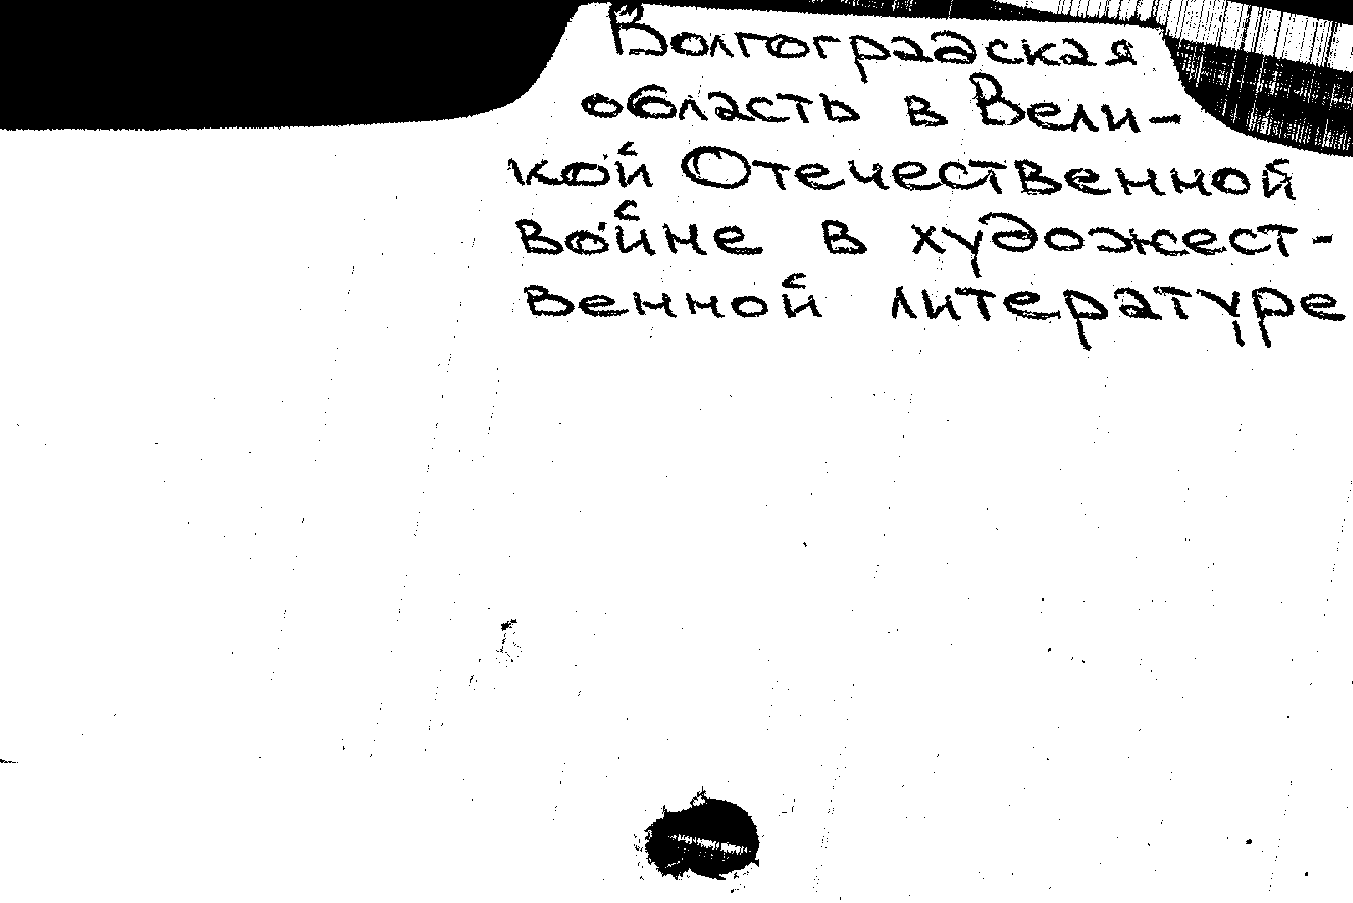 Волгоградская
область в Вели-
кой Отечественной
войне в художест-
венной литературе